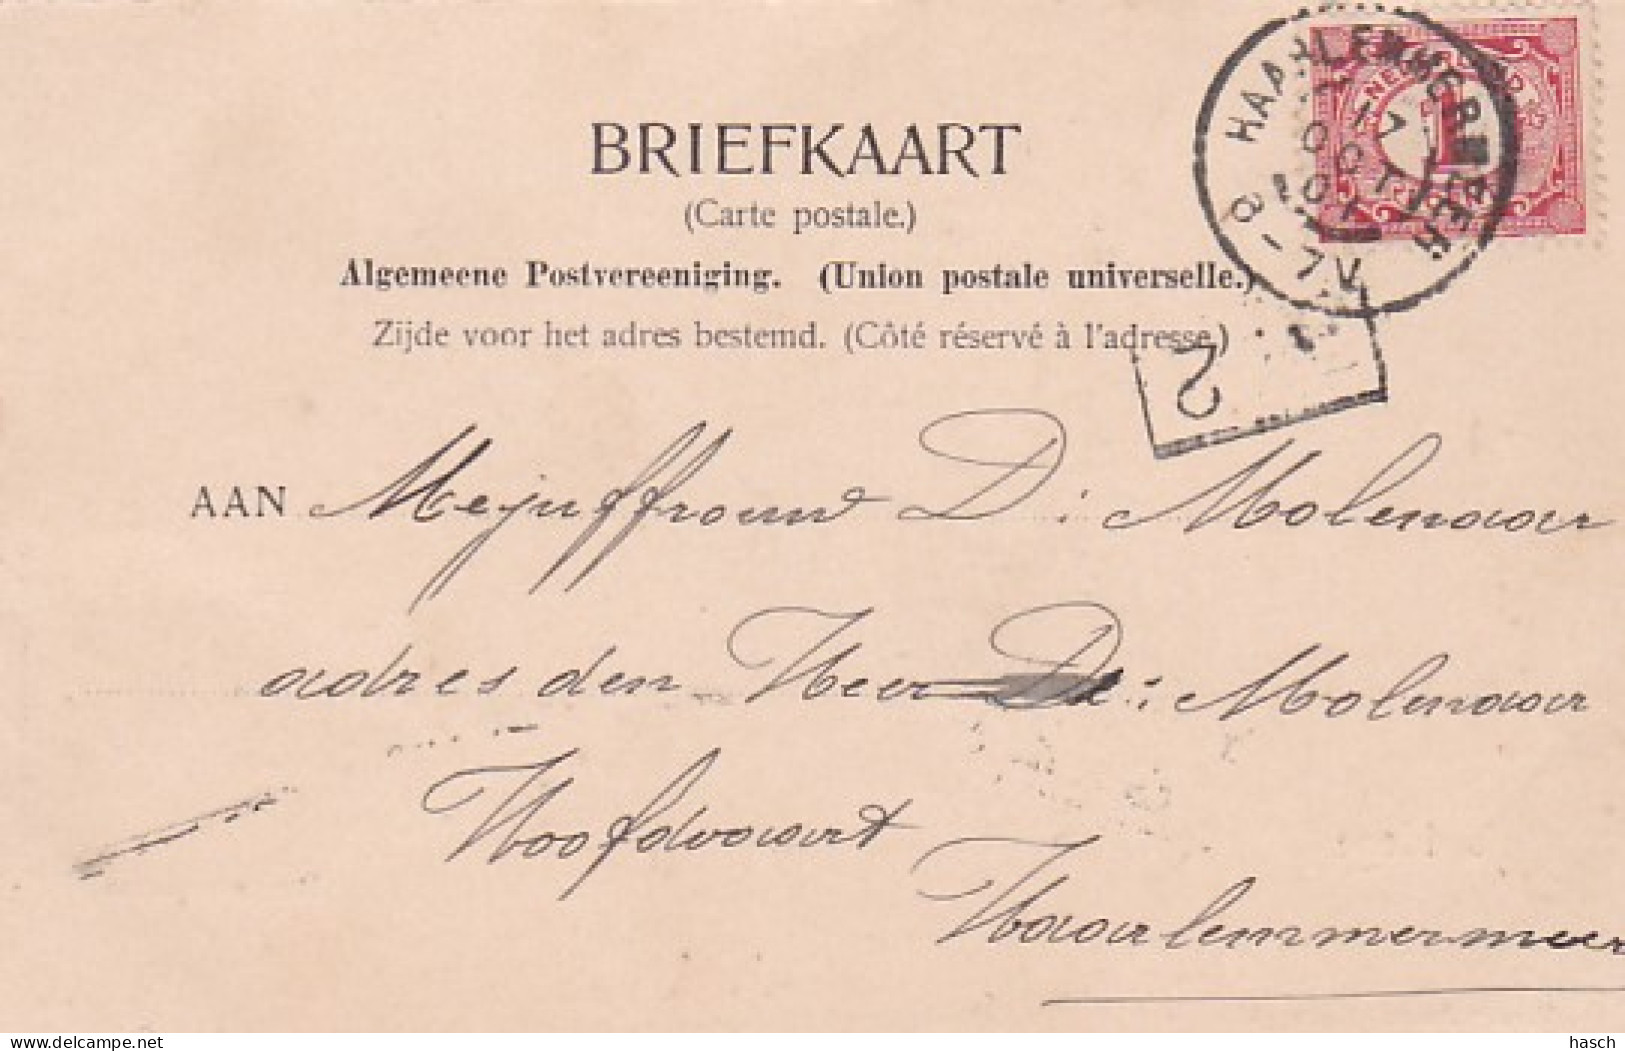 BRIEFKAART
(Carte postale.)
Algemeene Postvereeniging. (Union postale universelle.)
Zijde voor het adres bestemd. (Côté réservé à l'adresse.)
HAARLEMMERMEER
17
OCT
01
1
2
AAN Mejuffrouw D: Molenaar
adres den Heer D: Molenaar
Hoofdvaart
Haarlemmermeer
delcampe.net
hasch